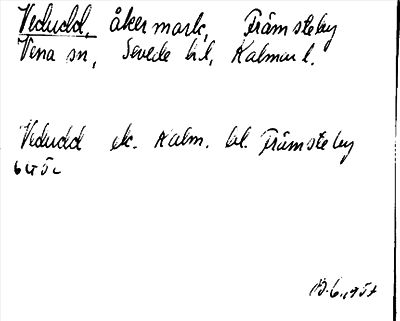 Vedudd, åkermark, Främsteby
Vena sn, Sevede hd, Kalmar l.
Vedudd ek. Kalm. bl. Främsteby
6G5c